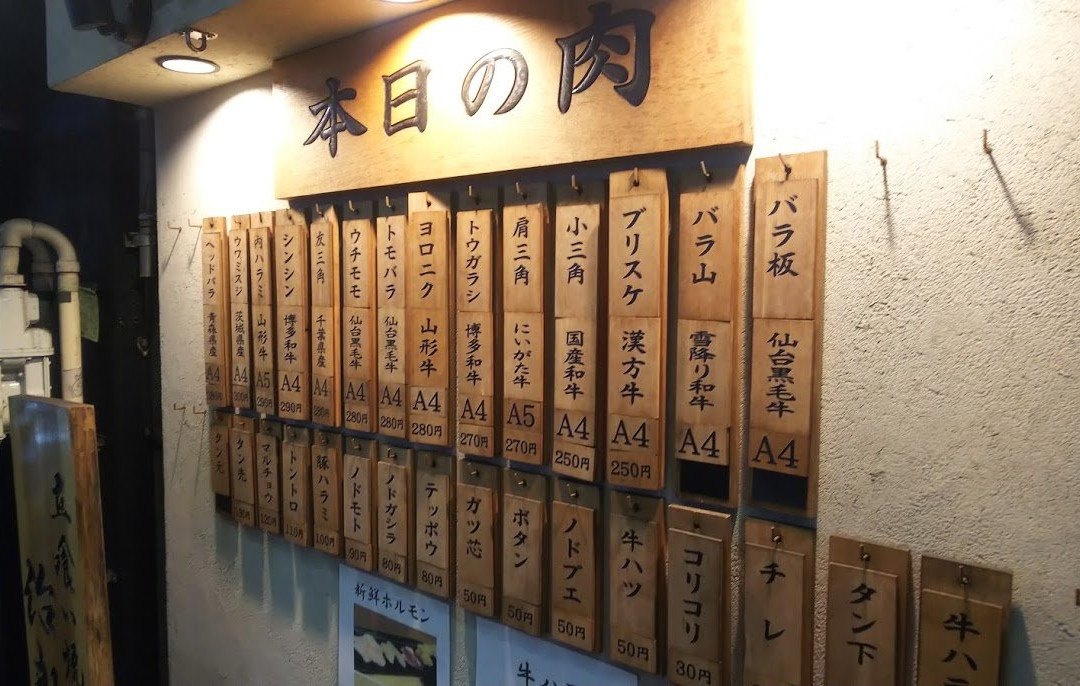 本日の肉
バラ板 仙台黒毛牛 A4
バラ山 雪降り和牛 A4
ブリスケ 漢方牛 A4 250円
小三角 国産和牛 A4 250円
肩三角 にいがた牛 A5 270円
トウガラシ 博多和牛 A4 270円
ヨロニク 山形牛 A4 280円
トモバラ 仙台黒毛牛 A4 280円
ウチモモ 仙台黒毛牛 A4 280円
友三角 千葉県産 A4 280円
シンシン 博多和牛 A4 290円
内ハラミ 山形牛 A5
ウワミスジ 茨城県産 A4
ヘッドバラ 青森県産 A4
牛ハ
タン下
チレ
コリコリ 30円
牛ハツ 50円
ノドブエ 50円
ボタン 50円
ガツ芯 50円
テッポウ 80円
ノドガシラ 80円
ノドモト 90円
豚ハラミ 100円
トントロ 110円
マルチョウ 120円
タン先
タン元
新鮮ホルモン
立喰い焼